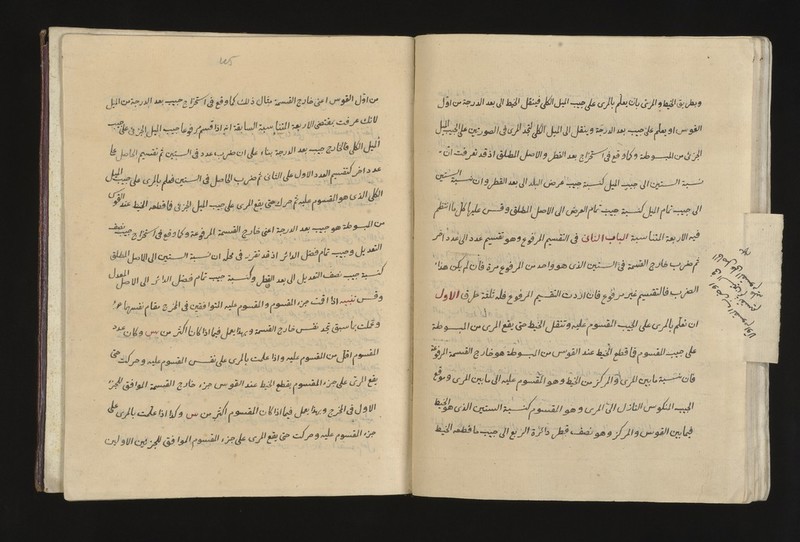 وبطريق الخيط والمرى بان يعلم بالمرى على جيب الميل الكلى فينقل الخيط الى بعد الدرجة من اول
القوس او يعلم على جيب بعد الدرجة وينقل الى الميل الكلى تجد المرى فى الصورتين على جيب الميل
الجزئى من المبسوطة وكما وقع فى استخراج بعد القطر والاصل المطلق اذ قد تعرفت ان
نسبة الستين الى جيب الميل كنسبة جيب عرض البلد الى بعد القطر وان نسبة الستين
الى جيب تمام الميل كنسبة جيب تمام العرض الى الاصل المطلق وقس عليها كل ما انتظم
فيه الاربعة المتناسبة الباب الثانى فى التقسيم المرفوع وهو تقسيم عدد الى عدد اخر
ثم ضرب خارج القسمة فى الستين الذى هو واحد من المرفوع مرة فان لم يكن هذا
الضرب فالتقسيم غير مرفوع فان اردت التقسيم المرفوع فله ثلثة طرق الاول
ان تعلم بالمرى على الجيب المقسوم عليه وتنقل الخيط حتى يقع المرى من المبسوطة
على جيب المقسوم فما قطع الخيط عند القوس من المبسوطة هو خارج القسمة المرفوعة
فان نسبة ما بين المرى والمركز من الخيط وهو المقسوم عليه الى ما بين المرى وموقع
الجيب المنكوس النازل الى المرى وهو المقسوم كنسبة الستين الذى هو الخيط
فيما بين القوس والمركز وهو نصف قطر دائرة الربع الى جيب ما قطعه الخيط
من اول القوس اعنى خارج القسمة مثال ذلك كما وقع فى استخراج جيب بعد الدرجة من الميل
لانك عرفت بمقتضى الاربعة المتناسبة السابقة انه اذا قسم مرفوعا جيب الميل الجزئى على جيب
الميل الكلى فالخارج جيب بعد الدرجة بناء على ان ضرب عدد فى الستين ثم تقسيم الحاصل على
عدد اخر كتقسيم العدد الاول على الثانى ثم ضرب الحاصل فى الستين فعلم بالمرى على جيب الميل
الكلى الذى هو المقسوم عليه ثم حرك حتى يقع المرى على جيب الميل الجزئى فما قطعه الخيط عند القوس
من المبسوطة هو جيب بعد الدرجة اعنى خارج القسمة المرفوعة وكما وقع فى استخراج جيب نصف
التعديل وجيب تمام فضل الدائر اذ قد تقرر فى محله ان نسبة الستين الى الاصل المطلق
كنسبة جيب نصف التعديل الى بعد القطر وكنسبة جيب تمام فضل الدائر الى الاصل المعدل
وقس تنبيه اذا اقمت جزء المقسوم والمقسوم عليه المتوافقين فى المخرج مقام نفسيهما
وعملت ما سبق تجد نفس خارج القسمة وبهذا يعمل فيما اذا كانا اكثر من س وكان عدد
المقسوم اقل من المقسوم عليه واذا علمت بالمرى على نفس المقسوم عليه وحركت حتى
يقع المرى على جزء المقسوم يقطع الخيط عند القوس جزء خارج القسمة الموافق للجزء
الاول فى المخرج وبهذا يعمل فيما اذا كان المقسوم اكثر من س وكذا اذا علمت بالمرى على
جزء المقسوم عليه وحركت حتى يقع المرى على جزء المقسوم الموافق للجزئين الاولين